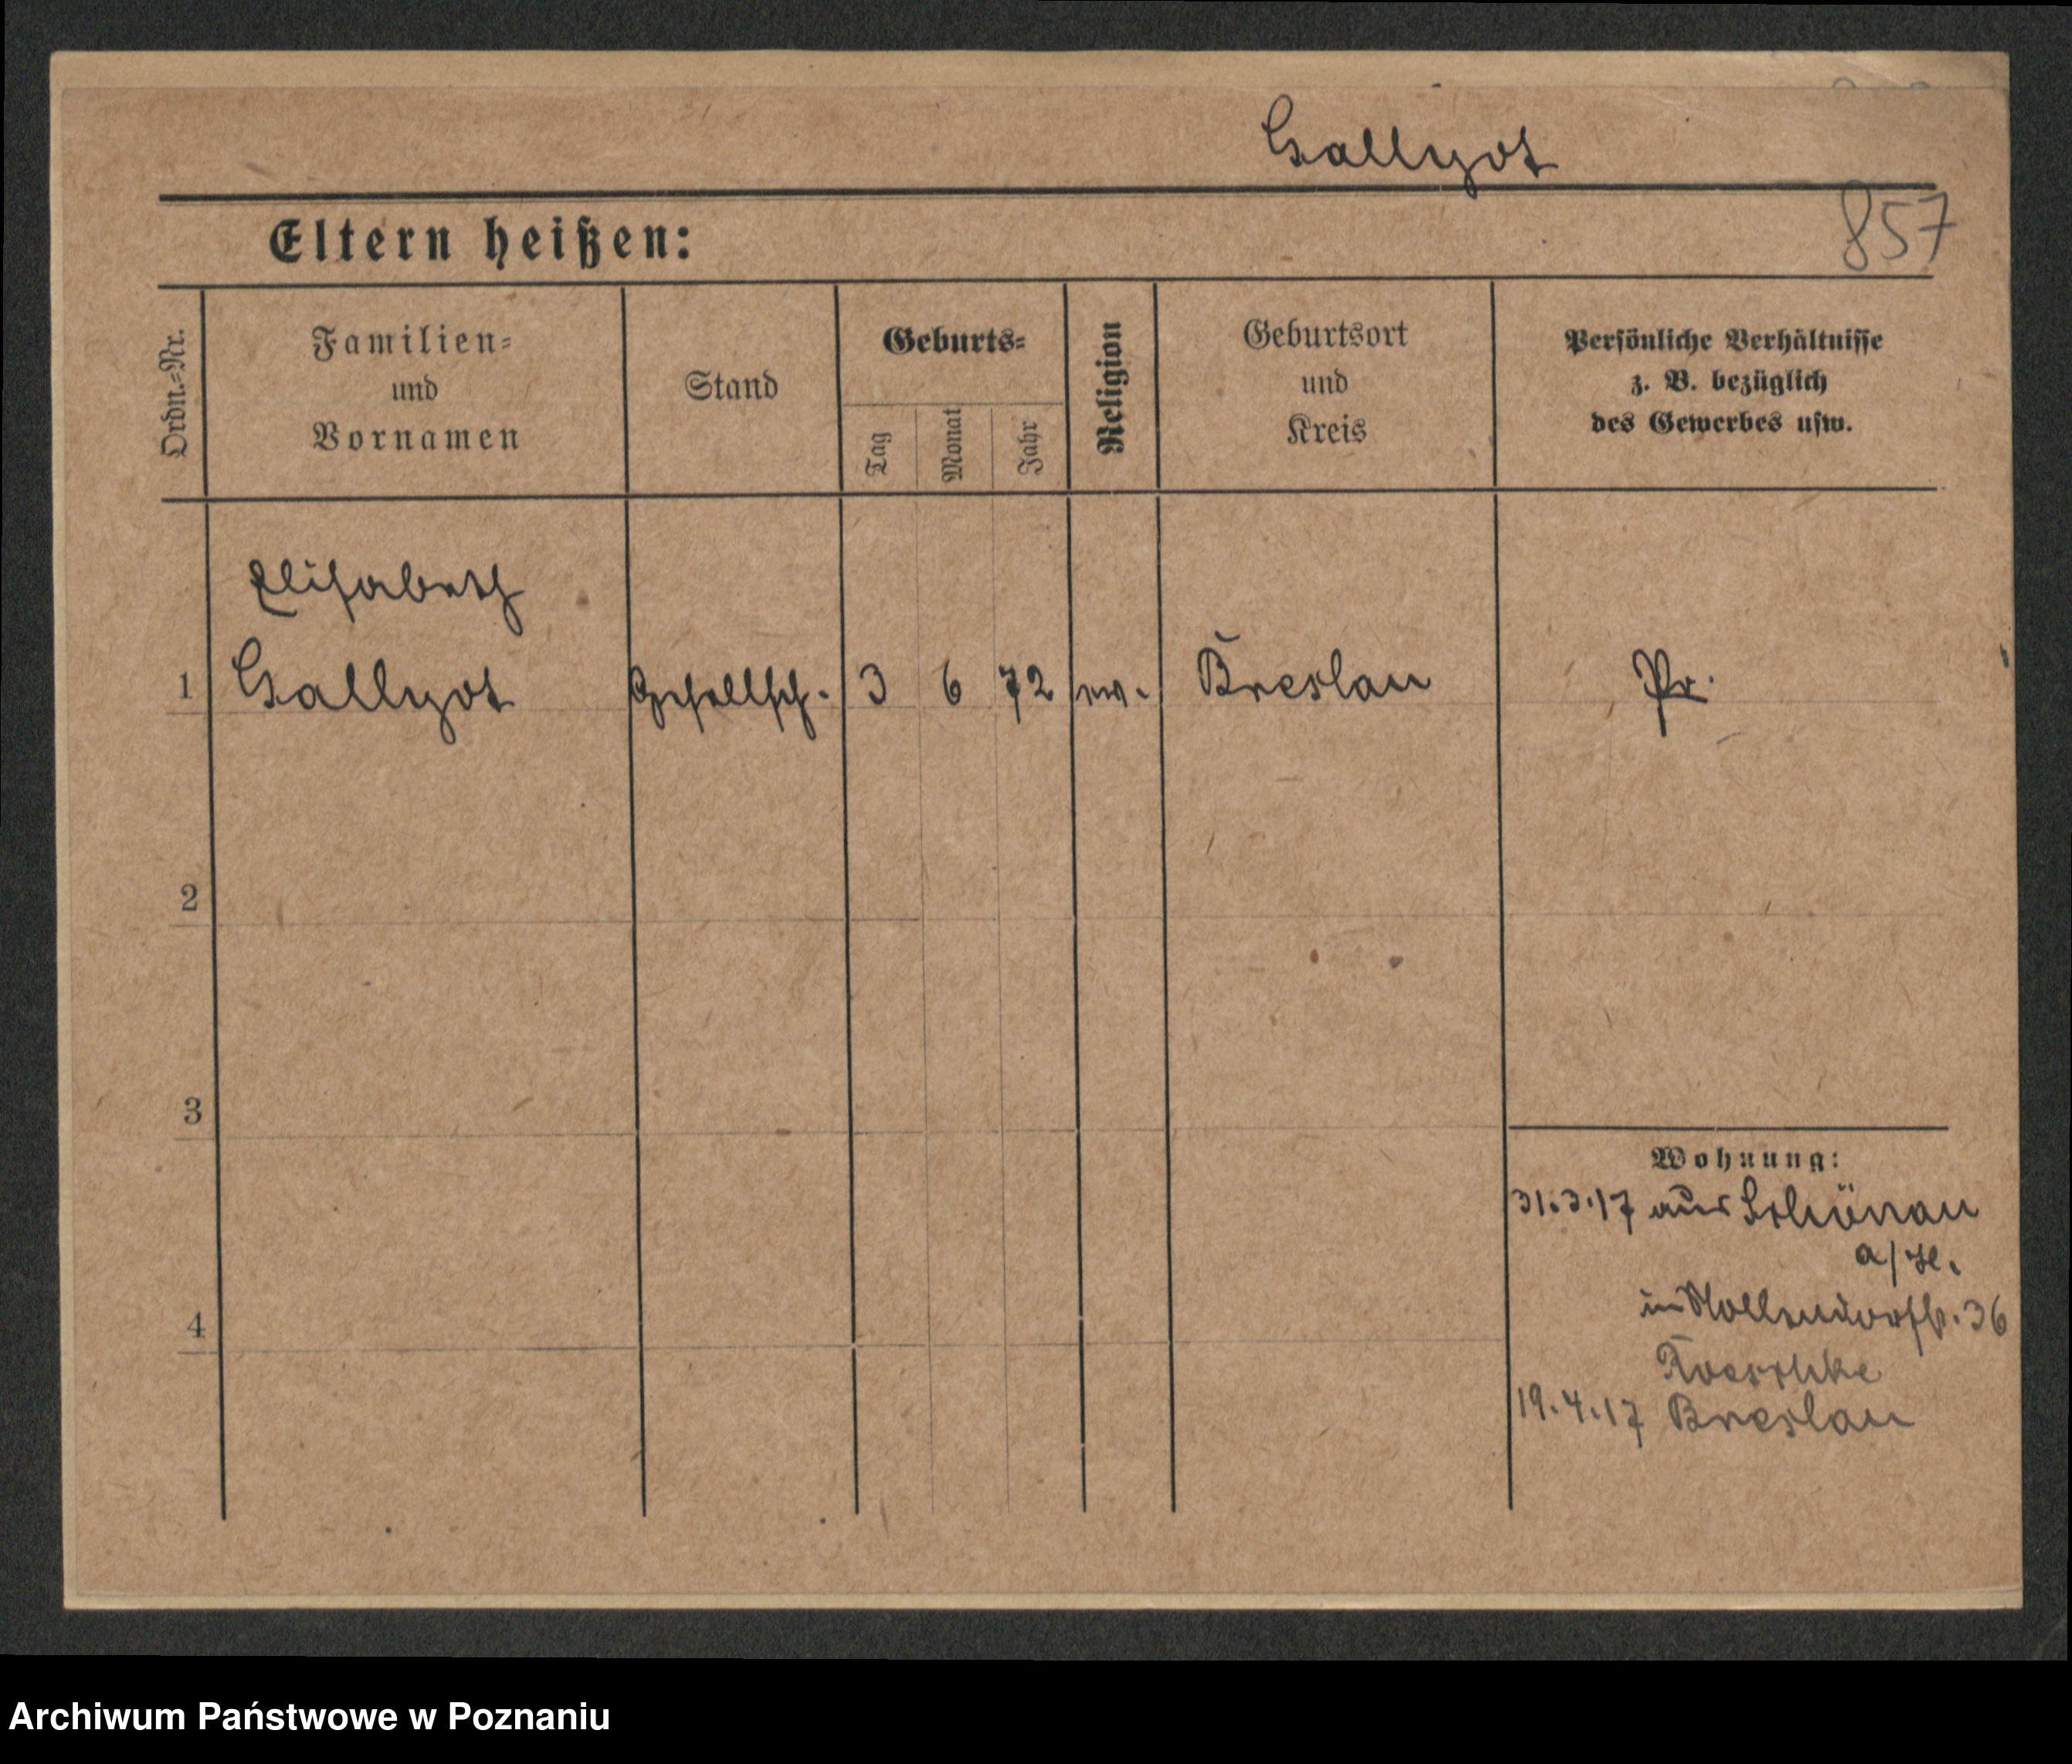 Gallyot
857
Eltern heißen:
Ordn.-Nr.
Familien-
und
Vornamen
Stand
Geburts-
Tag
Monat
Jahr
Religion
Geburtsort
und
Kreis
Persönliche Verhältnisse
z. B. bezüglich
des Gewerbes usw.
Elisabeth
1 Gallyot Gesellsch. 3 6 72 ev. Breslau Pr.
2
3
Wohnung:
31.3.17 aus Schönau
a/K.
in Nollendorfstr. 36
4
Roeschke
19.4.17 Breslau
Archiwum Państwowe w Poznaniu